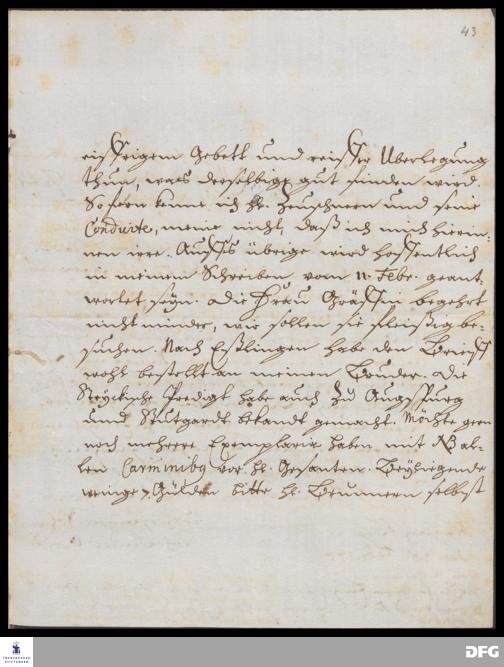 43
eiffrigem Gebett und reiffer Überlegung
thun, was derselbige gut finden wird.
So fern kenne ich H. Zeuschnern und seine
Conduite, meine nicht, daß ich mich hierin-
nen irre. Auffs übrige wird hoffentlich
in meinem Schreiben vom 11. Febr. geant-
wortet seyn. Die Frau Gräffin begehrt
nicht minder, wir sollen sie fleißig be-
suchen. Nach Eßlingen habe den Brieff
wohl bestellt an meinen Bruder. Die
Predigt habe auch zu Augspurg
und Stutgardt bekandt gemacht. Möchte gern
noch mehrere Exemplaria haben mit
len Carminibq vor H. Gesanten. Beyliegende
wenige Gülden bitte H. Brunnern selbst
FRANCKESCHE STIFTUNGEN
DFG